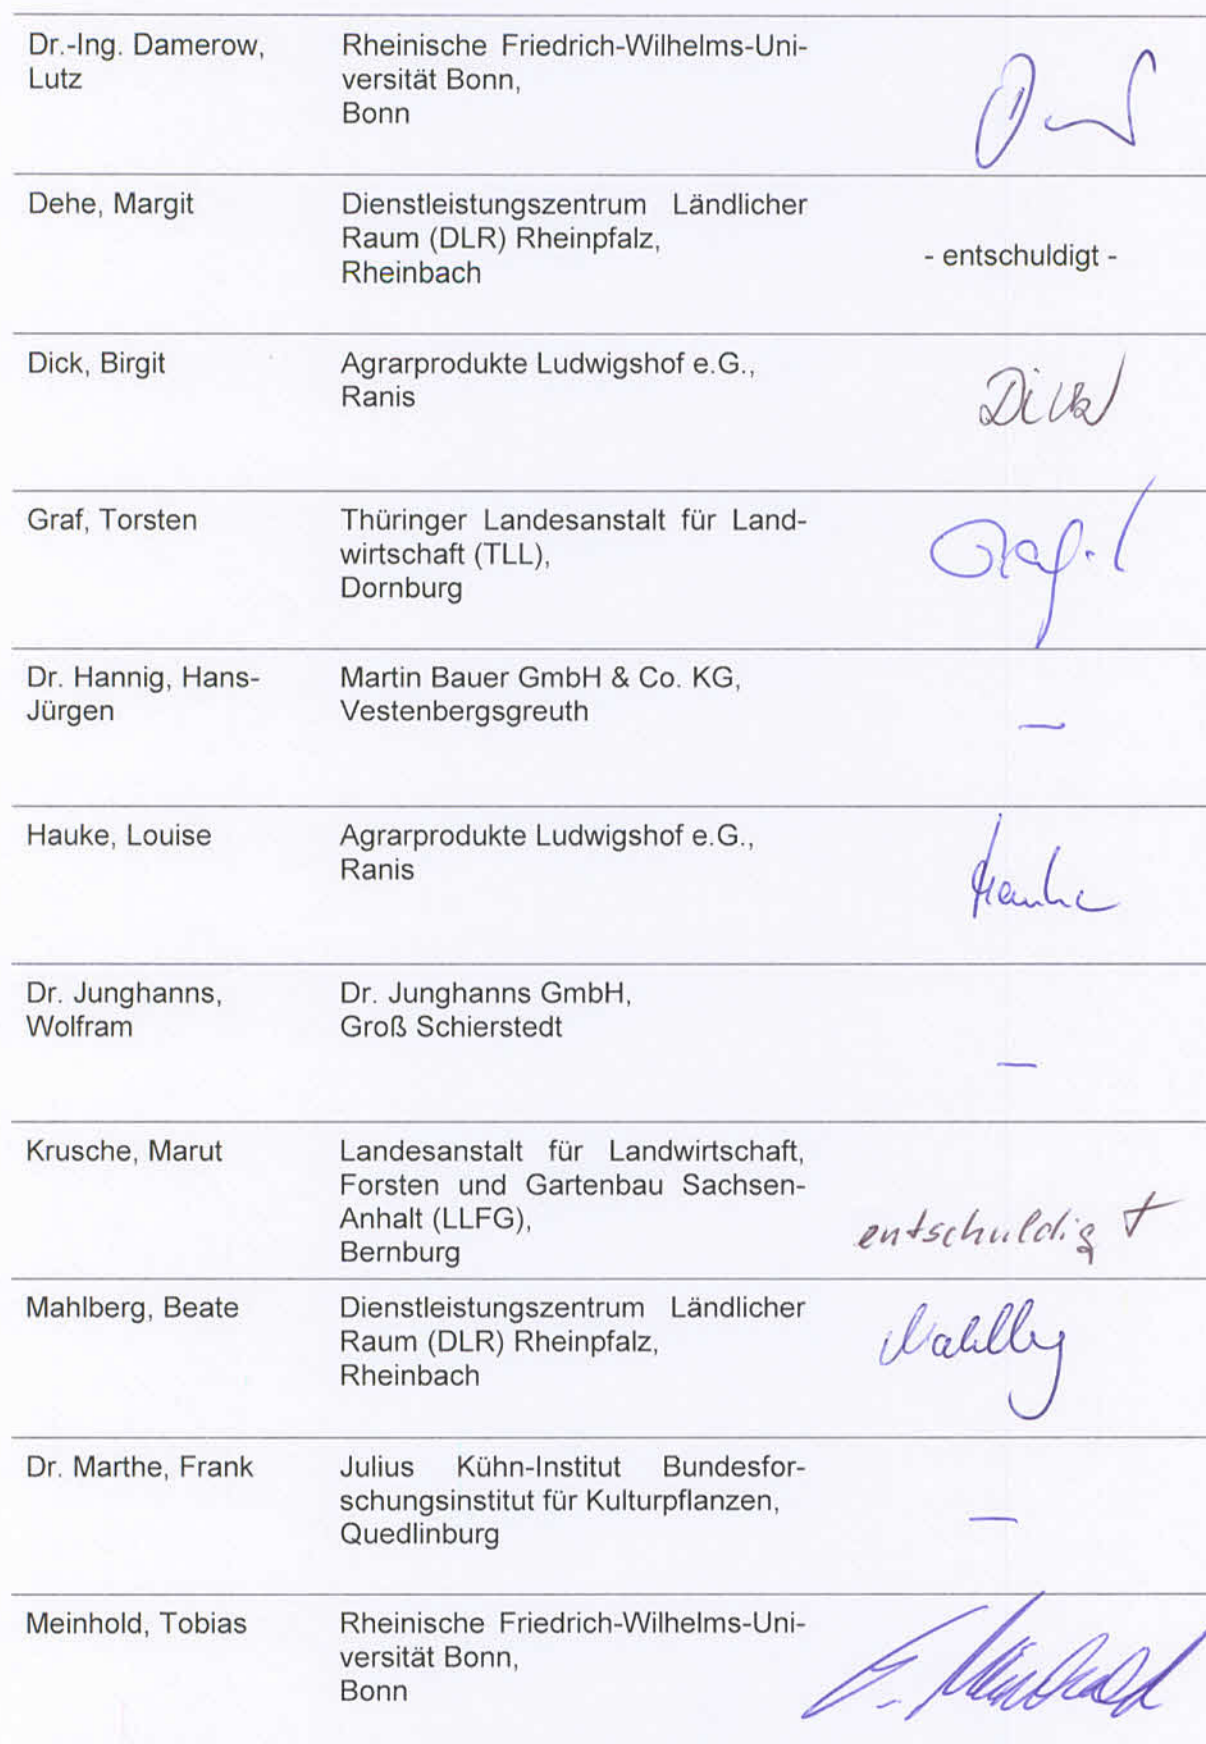 Dr.-Ing. Damerow, Rheinische Friedrich-Wilhelms-Uni-
Lutz versität Bonn,
Bonn
Dehe, Margit Dienstleistungszentrum Ländlicher
Raum (DLR) Rheinpfalz,
- entschuldigt -
Rheinbach
Dick, Birgit Agrarprodukte Ludwigshof e.G.,
Ranis Dick
Graf, Torsten Thüringer Landesanstalt für Land-
wirtschaft (TLL), Graf
Dornburg
Dr. Hannig, Hans- Martin Bauer GmbH & Co. KG,
Jürgen Vestenbergsgreuth
—
Hauke, Louise Agrarprodukte Ludwigshof e.G.,
Ranis Hauke
Dr. Junghanns, Dr. Junghanns GmbH,
Wolfram Groß Schierstedt
—
Krusche, Marut Landesanstalt für Landwirtschaft,
Forsten und Gartenbau Sachsen-
Anhalt (LLFG), entschuldigt
Bernburg
Mahlberg, Beate Dienstleistungszentrum Ländlicher
Raum (DLR) Rheinpfalz,
Rheinbach
Dr. Marthe, Frank Julius Kühn-Institut Bundesfor-
schungsinstitut für Kulturpflanzen,
—
Quedlinburg
Meinhold, Tobias Rheinische Friedrich-Wilhelms-Uni-
versität Bonn, Meinhold
Bonn